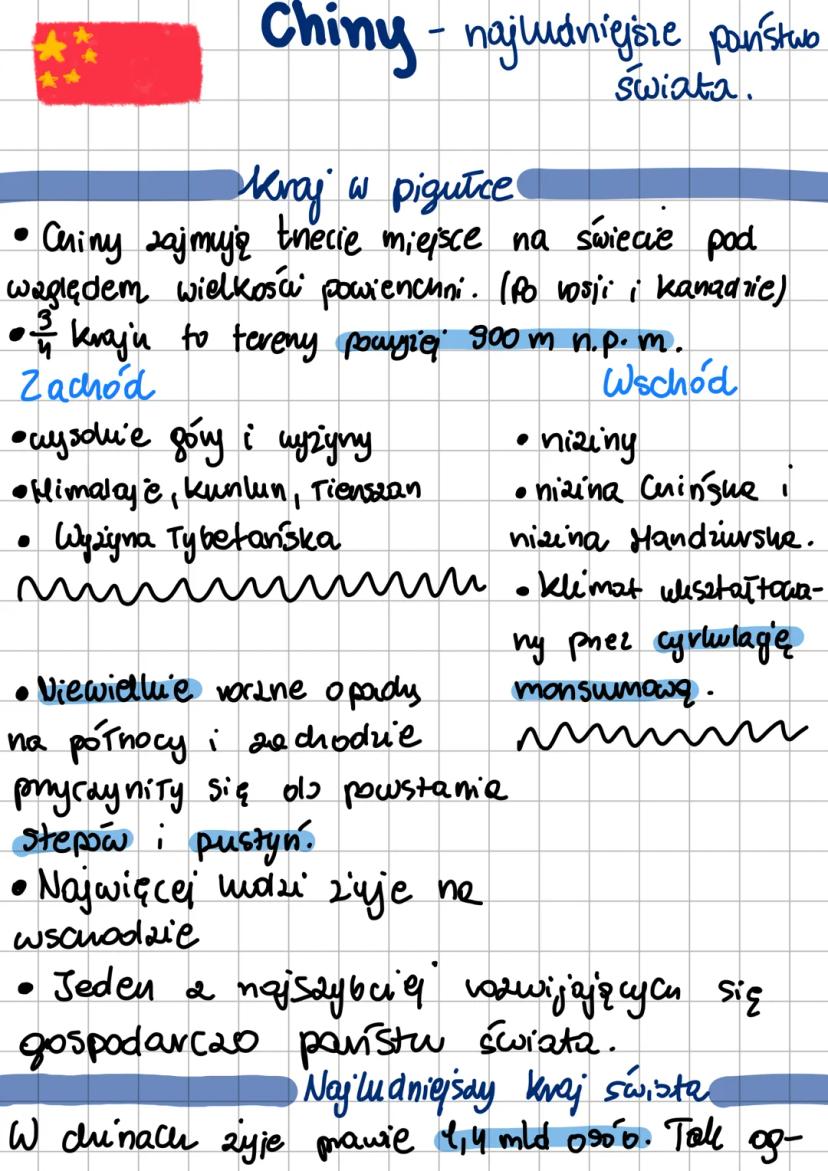 Chiny - najludniejsze państwo
świata.
Kraj w pigułce
• Chiny zajmują trzecie miejsce na świecie pod
względem wielkości powierzchni. (Po rosji i kanadzie)
• 3/4 kraju to tereny powyżej 900 m n.p.m.
Zachód
• wysokie góry i wyżyny
• Himalaje, Kunlun, Tienszan
• Wyżyna Tybetańska
Wschód
• niziny
• nizina Chińska i
nizina Mandżurska.
• Klimat kształtowa-
ny przez cyrkulację
monsunową.
• Niewielkie roczne opady
na północy i zachodzie
przyczyniły się do powstania
stepów i pustyń.
• Najwięcej ludzi żyje na
wschodzie
• Jeden z najszybciej rozwijających się
gospodarczo państw świata.
Najludniejszy kraj świata
W chinach żyje prawie 1,4 mld osób. Tak og-